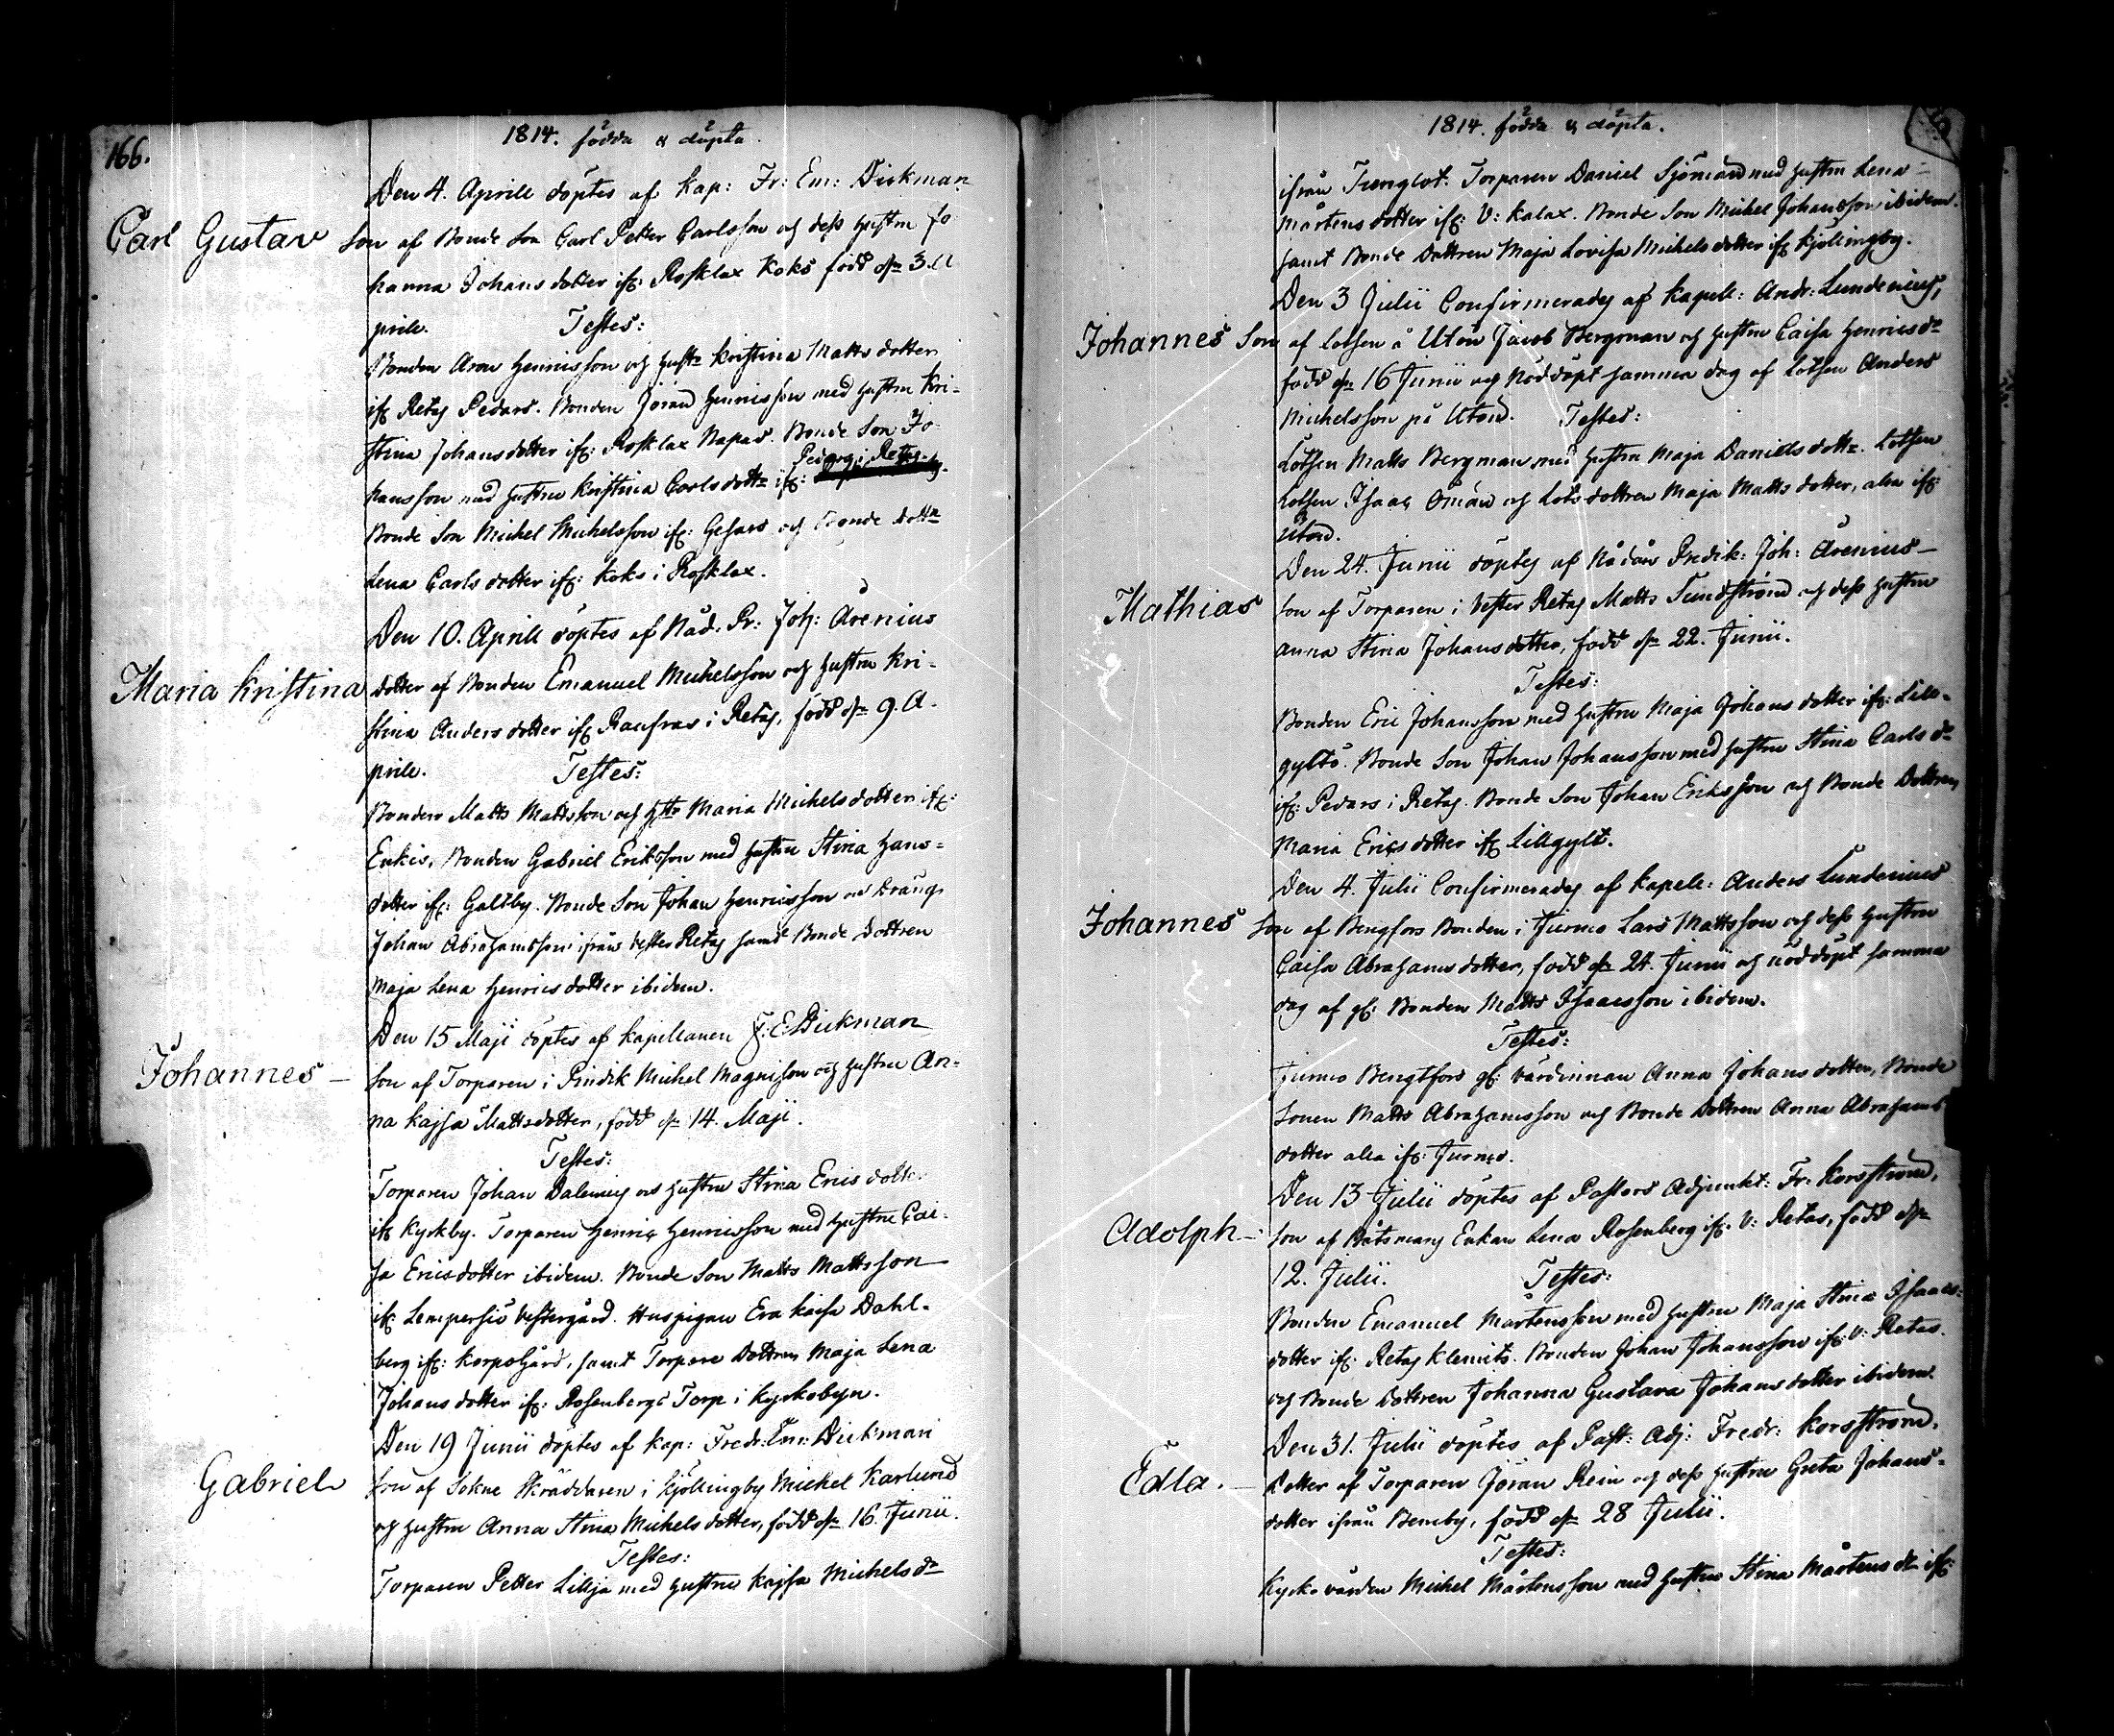 166.
1814. födda & döpta
Den 4. Aprill döptes af Kap: Fr: Em: Dickman
Carl Gustav Son af Bonde Son Carl Petter Carlsson och dess hustru Jo
hanna Johans dotter ifr: Rosklax Koks född dn 3. A
prile. Testes:
Bonden Aron Henricsson och hustr Kristina Matts dotter
ifr Retas Pedars. Bonden Jöran Henricsson med hustru Kri-
stina Johans dotter ifr: Rosklax Napar. Bonde Son Jo
Pedars i Retas.
hansson med hustru Kristina Carls dottr ifr:
Bonde Son Michel Michelsson ifr: Gesars och Bonde dottr
Lena Carls dotter ifr: Koks i Rosklax.
Den 10. Aprill döptes af Nåd. Pr: Joh: Arenius
Maria Kristina dotter af Bonden Emanuel Michelsson och hustru Kri-
stina Anders dotter ifr Raufvas i Retas, född dn 9. A.
prile. Testes:
Bonden Matts Mattsson och hstr Maria Michels dotter ifr:
Erikis, Bonden Gabriel Eriksson med hustru Stina Hans=
dotter ifr: Galtby. Bonde Son Johan Henricsson och Dräng
Johan Abrahamsson ifrån Vester Retas samt Bonde Dottren
Maja Lena Henrics dotter ibidem.
Den 15 Maji döptes af Kapellanen F: E: Dickman
Johannes – Son af Torparen i Pindik Michel Magnisson och hustru An-
na Kajsa Mattsdotter, född dn 14. Maji.
Testes:
Torparen Johan Dalenius och hustru Stina Erics dottr
ifr Kyrkby. Torparen Henric Henricsson med hustru Cai-
sa Ericsdotter ibidem. Bonde Son Matts Mattsson
ifr Lempersiö Vestergård. Huspigan Eva Kaisa Dahl-
berg ifr: Korpogård, samt Torpare Dottren Maja Lena
Johans dotter ifr: Rosenbergs Torp i Kyrkobyn.
Den 19 Junii döptes af Kap: Fredr: Em: Dickman
Gabriel Son af Sokne Skräddaren i Kjöllingby Michel Karlund
och hustru Anna Stina Michels dotter, född dn 16. Junii.
Testes:
Torparen Petter Lillja med hustru Kajsa Michels dr
1814. födda & döpta.
ifrån Trenglot. Torparen Daniel Sjöman med hustru Lena
Mårtens dotter ifr: V: Kalax. Bonde Son Michel Johansson ibidem.
samt Bonde Dottren Maja Lovisa Michels dotter ifr Kjölingby.
Den 3 Julii Confirmerades af Kapell: Andr: Lundenius,
Johannes Son af Lotsen å Utön Jacob Bergman och hustru Caisa Henricsdr
född dn 16 Junii och Nöddöpt samma dag af Lotsen Anders
Michelsson på Utön. Testes:
Lotsen Matts Bergman med hustru Maja Daniels dottr. Lotsen
Lotsen Isaac Öman och Lots dottren Maja Matts dotter, alla ifr:
Utön.
Den 24. Junii döptes af Nådårs Predik: Joh: Arenius –
Mathias Son af Torparen i Vester Retas Matts Sundström och dess hustru
Anna Stina Johans dotter, född dn 22. Junii.
Testes:
Bonden Eric Johansson med hustru Maja Johans dotter ifr: Lill-
gyltö. Bonde Son Johan Johansson med hustru Stina Carls dr
ifr: Pedars i Retas. Bonde Son Johan Eriksson och Bonde Dottren
Maria Erics dotter ifr Lillgylt.
Den 4. Julii Confirmerades af Kapell: Anders Lundenius
Johannes Son af Bengfors Bonden i Jurmo Lars Mattsson och dess hustru
Caisa Abrahams dotter, född dn 24. Junii och nöddöpt samma
dag af gl: Bonden Matts Isaacsson ibidem.
Testes:
Jurmo Bengtfors gl: värdinnan Anna Johans dotter, Bonde
Sonen Matts Abrahamsson och Bonde Dottren Anna Abrahams
dotter alla ifr: Jurmo.
Den 13 Julii döptes af Pastors Adjunkt: Fr: Korsström,
Adolph – Son af Båtsmans Enkan Lena Rosenberg ifr. V: Retas, född dn
12. Julii. Testes:
Bonden Emanuel Mårtensson med hustru Maja Stina Isaacs=
dotter ifr: Retas Klemets. Bonden Johan Johansson ifr: V: Retas.
och Bonde Dottren Johanna Gustava Johans dotter ibidem.
Den 31. Julii döptes af Past: Adj: Fredr: Korsström.
Edla. – Dotter af Torparen Jöran Rein och dess hustru Greta Johans-
dotter ifrån Bemeby, född dn 28 Julii.
Testes:
Kyrko värden Michel Mårtensson med hustru Stina Mårtens dr ifr: